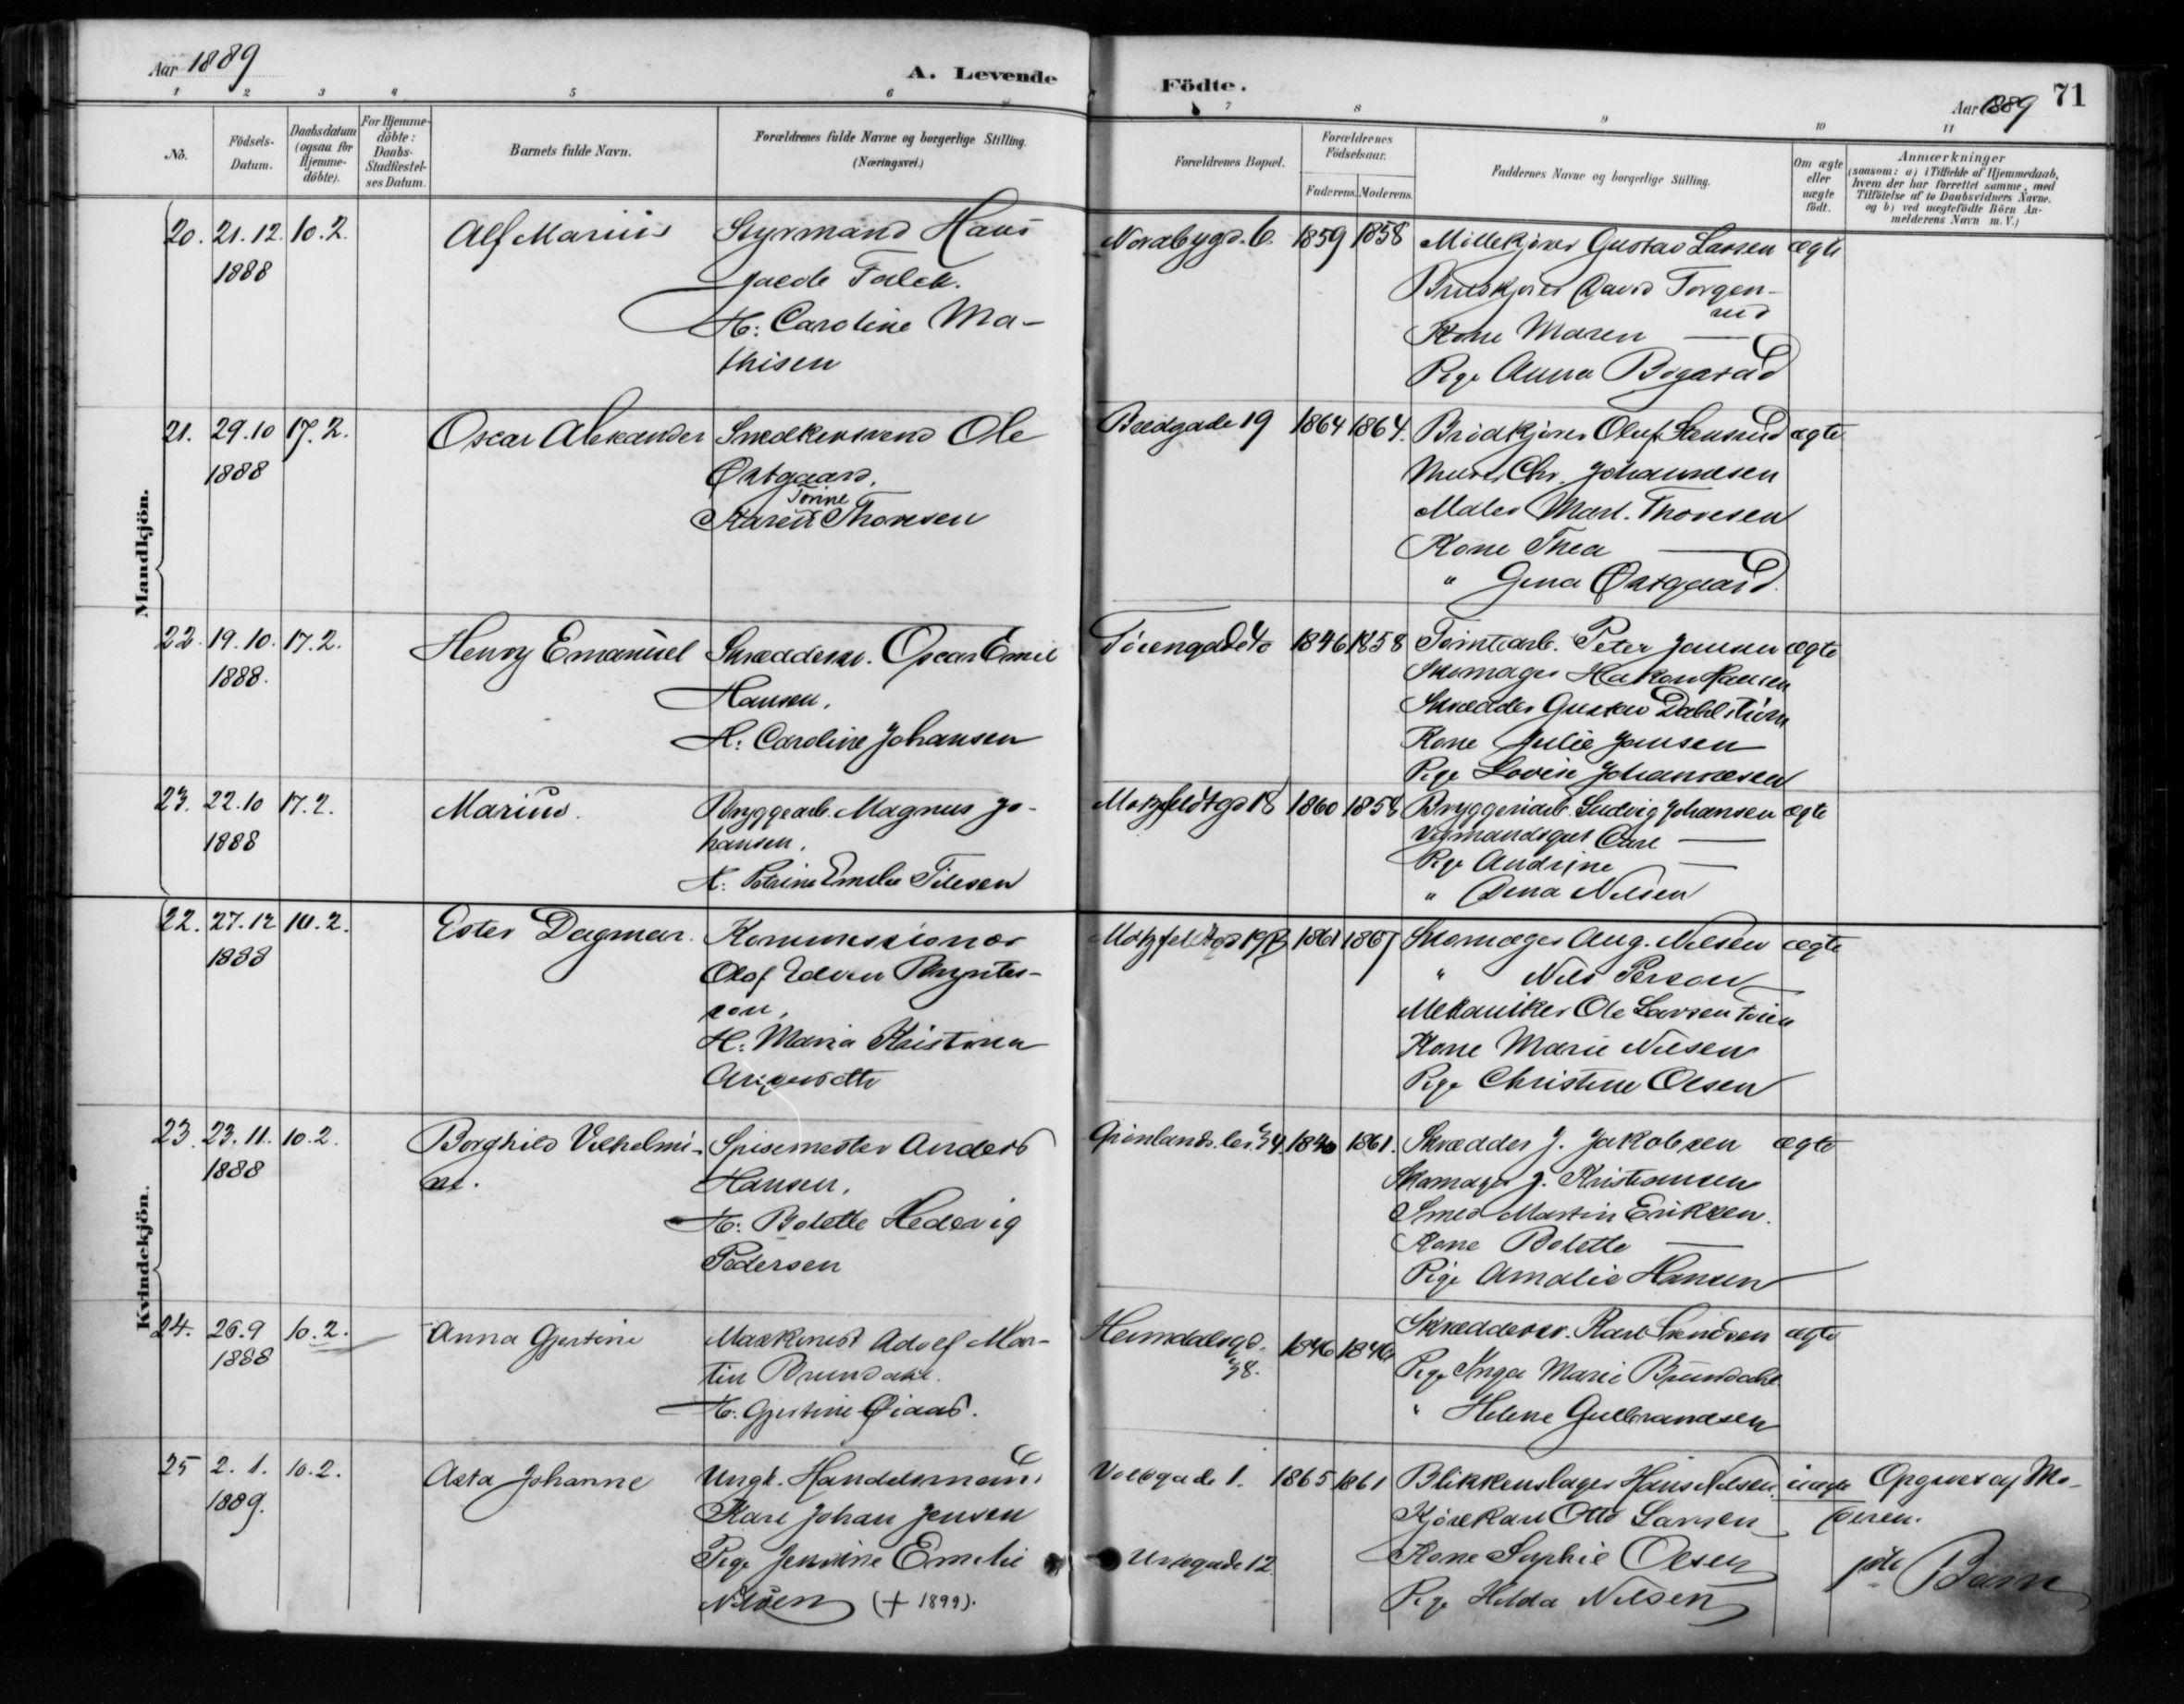 Aar 1889
A. Levende
Födte.
Aar 1889
71
1 2 3 4 5 6 7 8 9 10 11
No.
Födsels-Datum.
Daabsdatum (ogsaa for Hjemme-döbte).
For Hjemme-döbte: Daabs-Stadfæstel-ses Datum.
Barnets fulde Navn.
Forældrenes fulde Navne og borgerlige Stilling.
(Næringsvei.)
Forældrenes Bopæl.
Forældrenes Födselsaar.
Faderens. Moderens.
Faddernes Navne og borgerlige Stilling.
Om ægte eller uægte födt.
Anmærkninger
(saasom: a) i Tilfælde af Hjemmedaab,
hvem der har forrettet samme, med
Tilföielse af to Daabsvidners Navne.
og b) ved uægtefödte Börn An-
melderens Navn m. V.)
Mandkjön.
20. 21.12. 10.2. Alf Marius Styrmand Hans Nordbygd. 6. 1859 1858 Møllekjører Gustav Larsen ægte
1888
Falck.
David Torgen-
rud
H: Caroline Ma-
Kone Maren —
thisen
Pige Anna Bogarud
21. 29.10 17.2. Oscar Alexander Snedkersvend Ole Bredgade 19 1864 1864. Brødkjører Oluf ægte
1888
Østgaard,
Murer Chr. Johannesen
Torine
Karen Thoresen
Maler Mart. Thoresen
Kone Thea —
" Gina Østgaard.
22. 19.10. 17.2. Henry Emanuel Skræddersv. Oscar Emil 1846 1858 Peter Jansen ægte
1888.
Hansen,
Skomager Hakon Hansen
Skrædder Gustav Dahlstrøm
H: Caroline Johansen
Kone Julie Jansen
Pige Lovise Johannesen
23. 22.10 17.2. Marius. Bryggearb. Magnus Jo- Motzfeldtgd 18 1860 1858 Bryggeriarb. Ludvig Johansen ægte
1888
hansen,
Carl —
Pige Andrine —
H: Petrine Emilie Tilesen
" Dina Nilsen
Kvindekjön.
22. 27.12 10.2. Ester Dagmar. Kommissionær 1861 1867 Skomager Aug. Nilsen ægte
1888
Olof Edvin Bryntes-
" Nils Person
son,
Mekaniker Ole Larsen
H: Maria Kristina
Kone Marie Nilsen
Pige Christine Olsen
23. 23.11. 10.2. Borghild Vilhelmi- Spisemester Anders Grønlandsler. 34. 1840 1861. Skrædder J. Jakobsen ægte
1888
ne.
Hansen,
Skomager J. Kristiansen
Smed Martin Eriksen.
H: Bolette Hedevig
Kone Bolette —
Pedersen
Pige Amalie Hansen
24. 26.9 10.2. Anna Gjertine Maskinist Adolf Mar- Heimdalsgd. 38. 1846 1846 Skræddersv. Karl Svendsen ægte
1888
tin Brundahl.
Pige Inga Marie Brundahl
H: Gjertine Øiaas.
" Helene Gulbrandsen
25 2.1. 10.2. Asta Johanne Ungk. Handelsmand Voldgade 1. 1865 1861 Blikkenslager Hans Nilsen. uægte Opgivet af Mo-
1889.
Karl Johan Jensen
Kjørekarl Otto Larsen
deren.
Pige Jensine Emilie
Urtegade 12.
Kone Sophie Olsen
1ste Barn
Nilsen (+ 1899).
Pige Hilda Nilsen